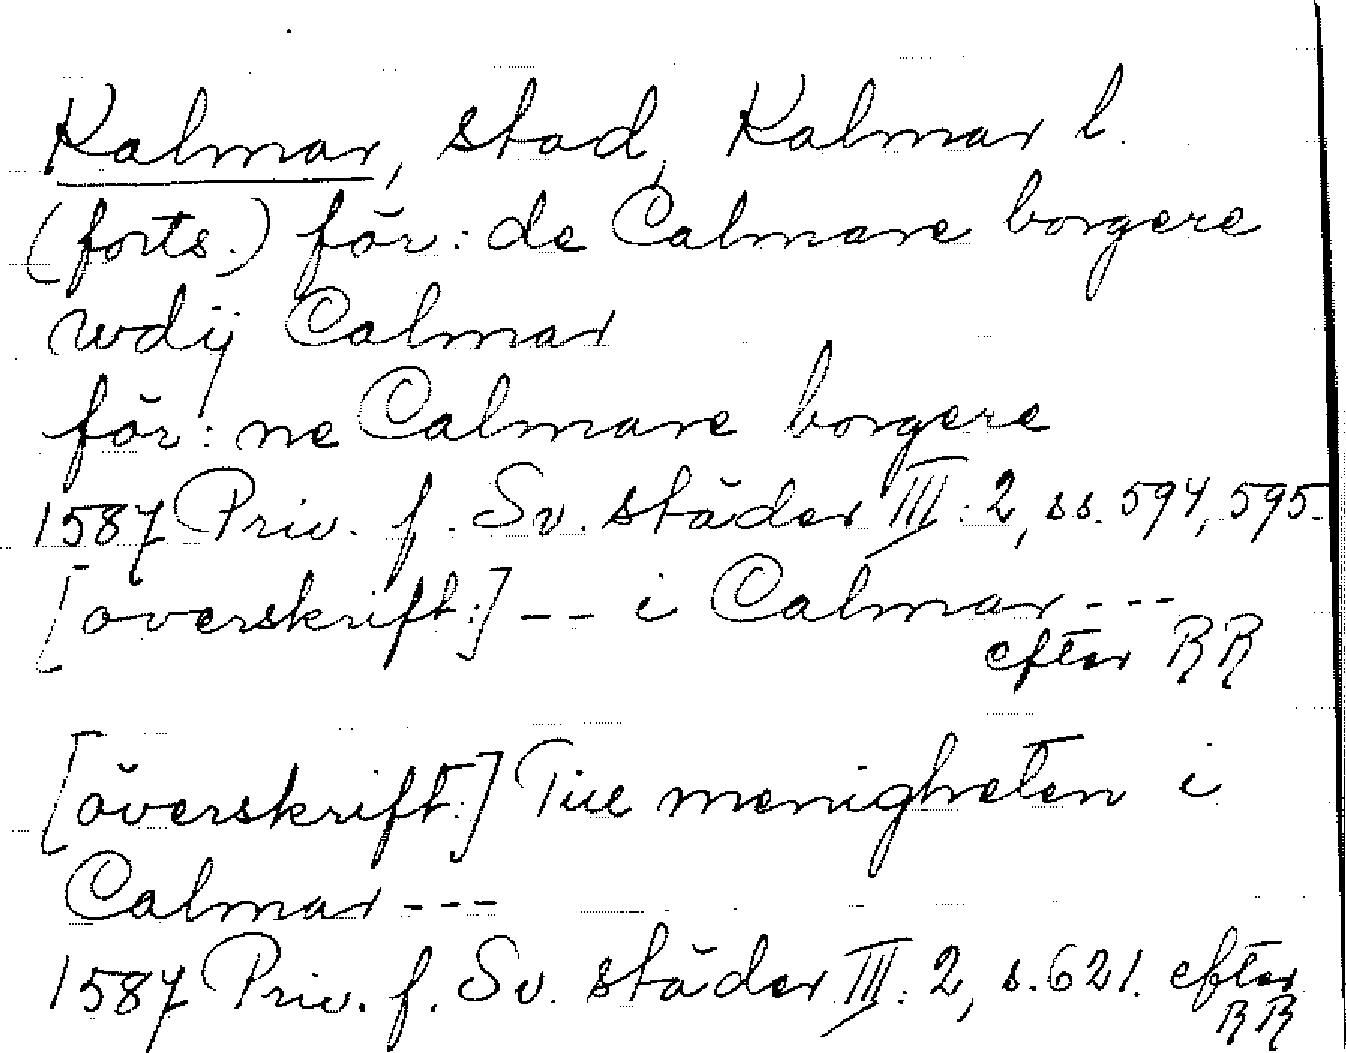 Kalmar, stad, Kalmar l.
(forts.) för: de Calmare borgere
wdij Calmar
för: ne Calmare borgere
1587 Priv. f. Sv. städer III: 2, ss. 594, 595.
[överskrift:] -- i Calmar ---
efter RR
[överskrift:] Till menigheten i
Calmar ---
1587 Priv. f. Sv. städer III: 2, s. 621. efter
RR